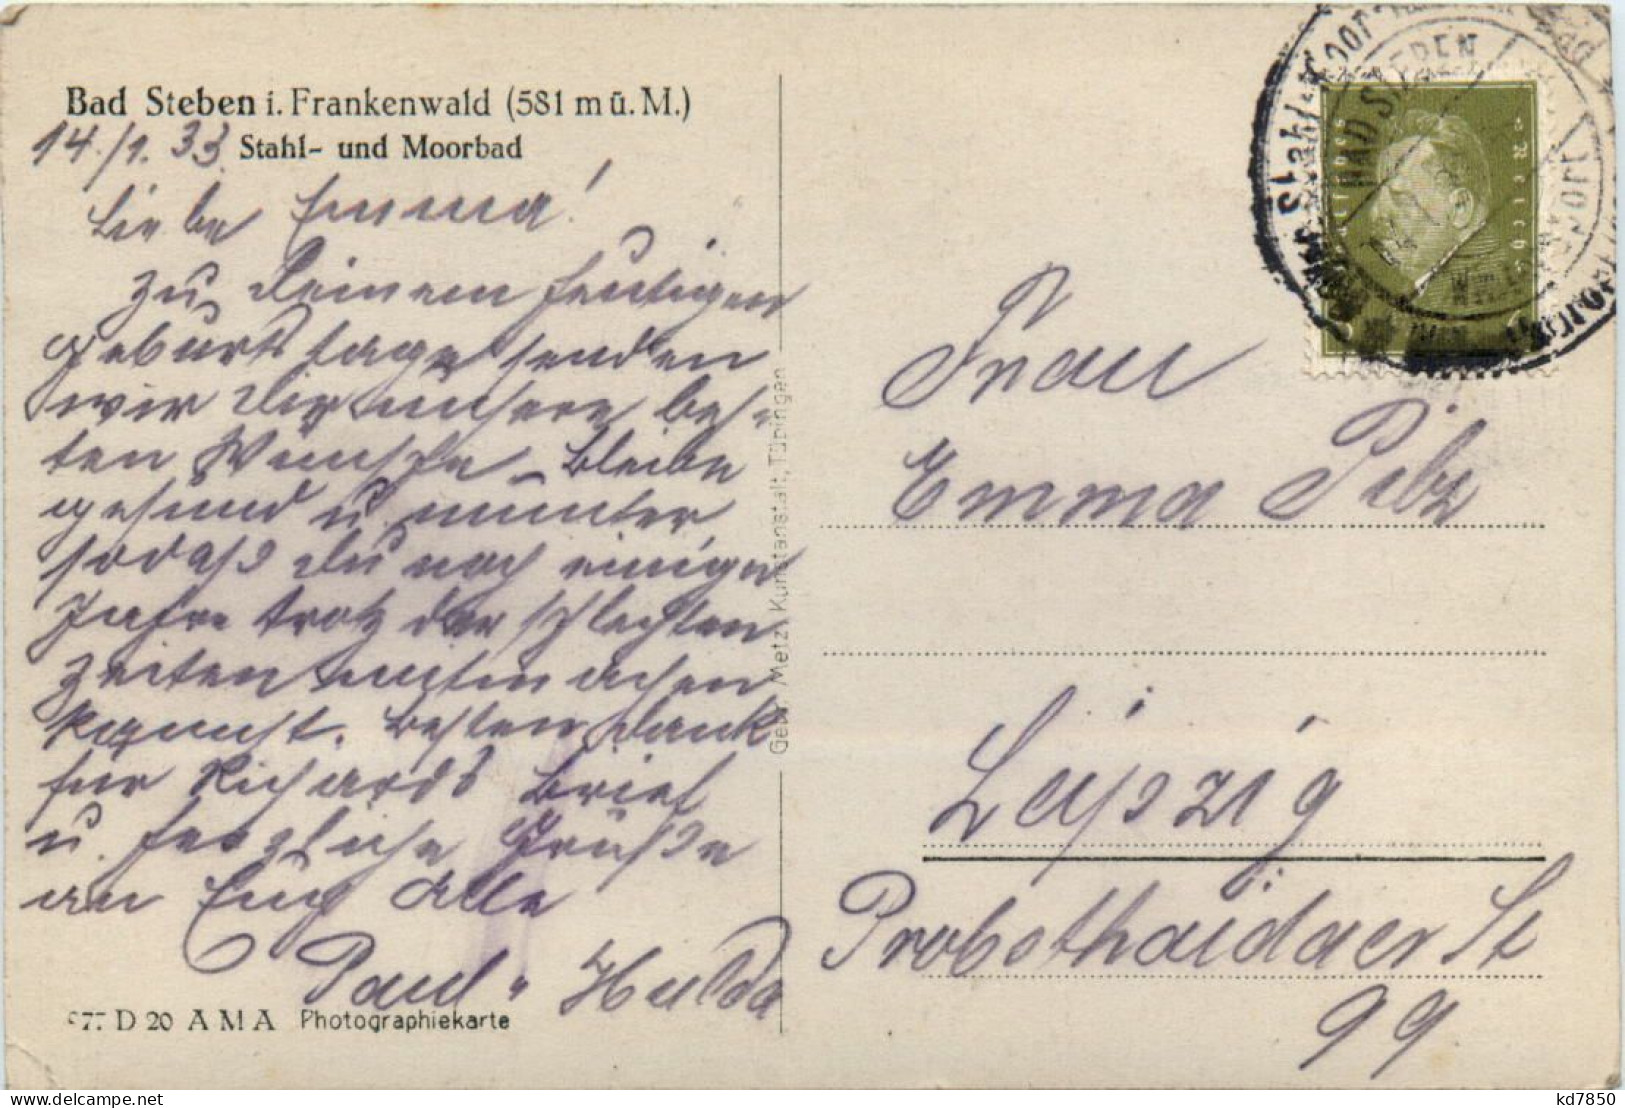 Bad Steben i. Frankenwald (581 m ü. M.)
Stahl- und Moorbad
14./1. 33.
Liebe Emma!
Zu Deinem heutigen
Geburtstage senden
wir Dir unsere bes-
ten Wünsche. Bleibe
gesund u. munter
sodaß Du noch einige
Jahre trotz der schlechten
Zeiten mitmachen
kannst. Besten Dank
für Richards Brief
u. herzliche Grüße
an Euch Alle
Paul u. Hulda
D 20 AMA Photographiekarte
Gebr. Metz, Kunstanstalt, Tübingen
BAD STEBEN
Deutsches Reich
Frau
Emma Pilz
Leipzig
Probsthaidaer St
99
kd7850